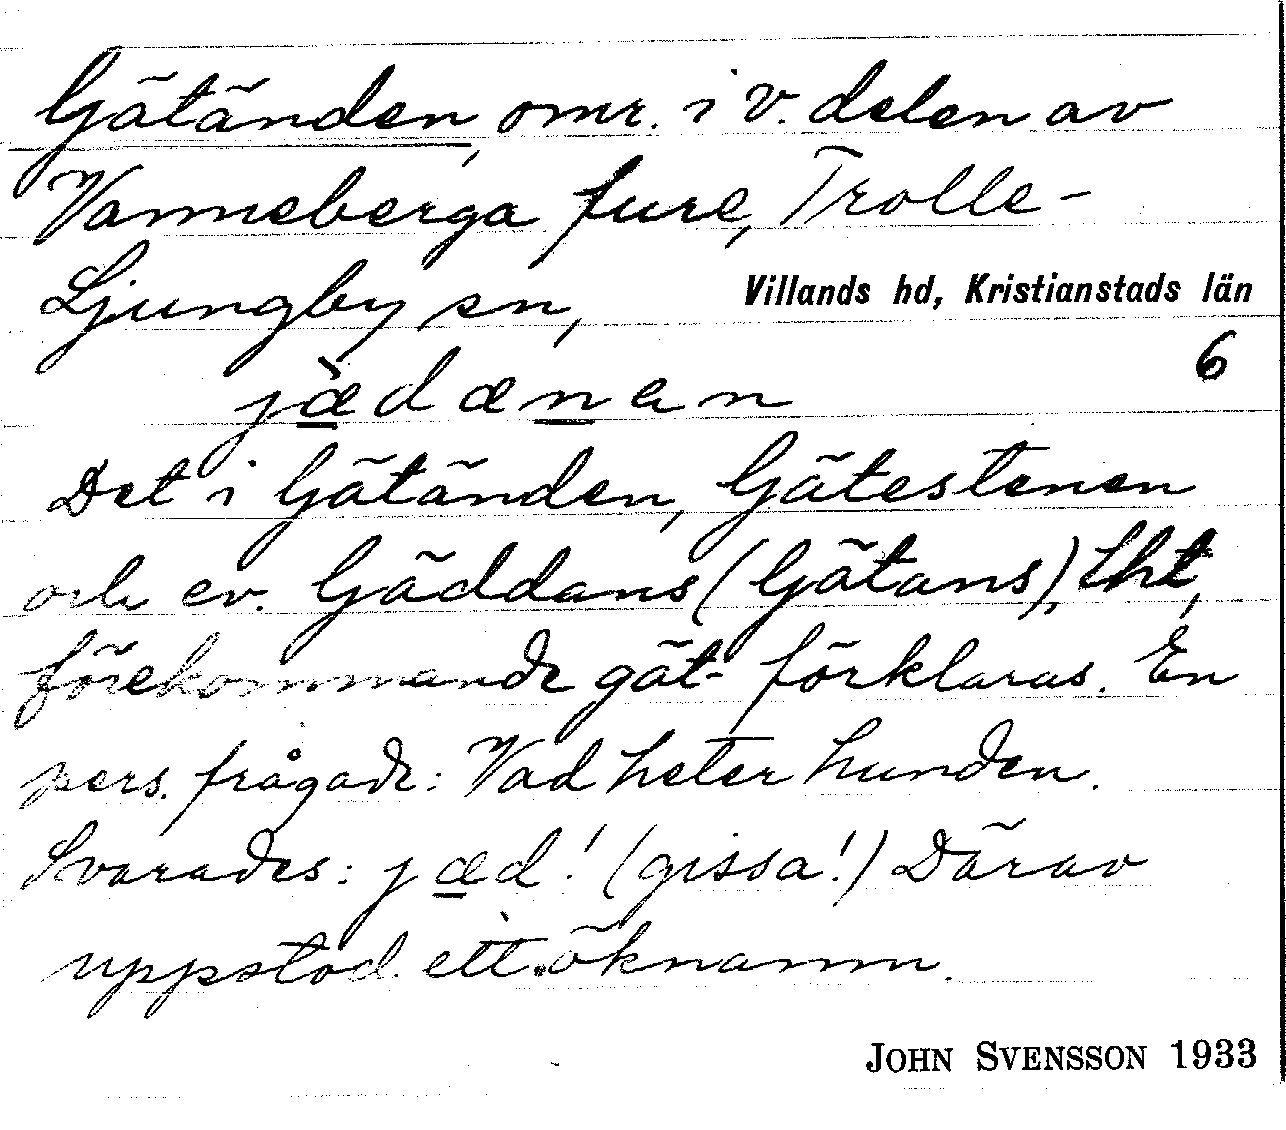 Gätänden, omr. i v. delen av
Vanneberga fure, Trolle-
Ljungby sn, Villands hd, Kristianstads län
6
jædænen
Det i Gätänden, Gätestenen
och ev. Gäddans (Gätans), Lht,
förekommande gät- förklaras. En
pers. frågade: Vad heter hunden.
Svarades: jæd! (gissa!) Därav
uppstod ett öknamn.
JOHN SVENSSON 1933